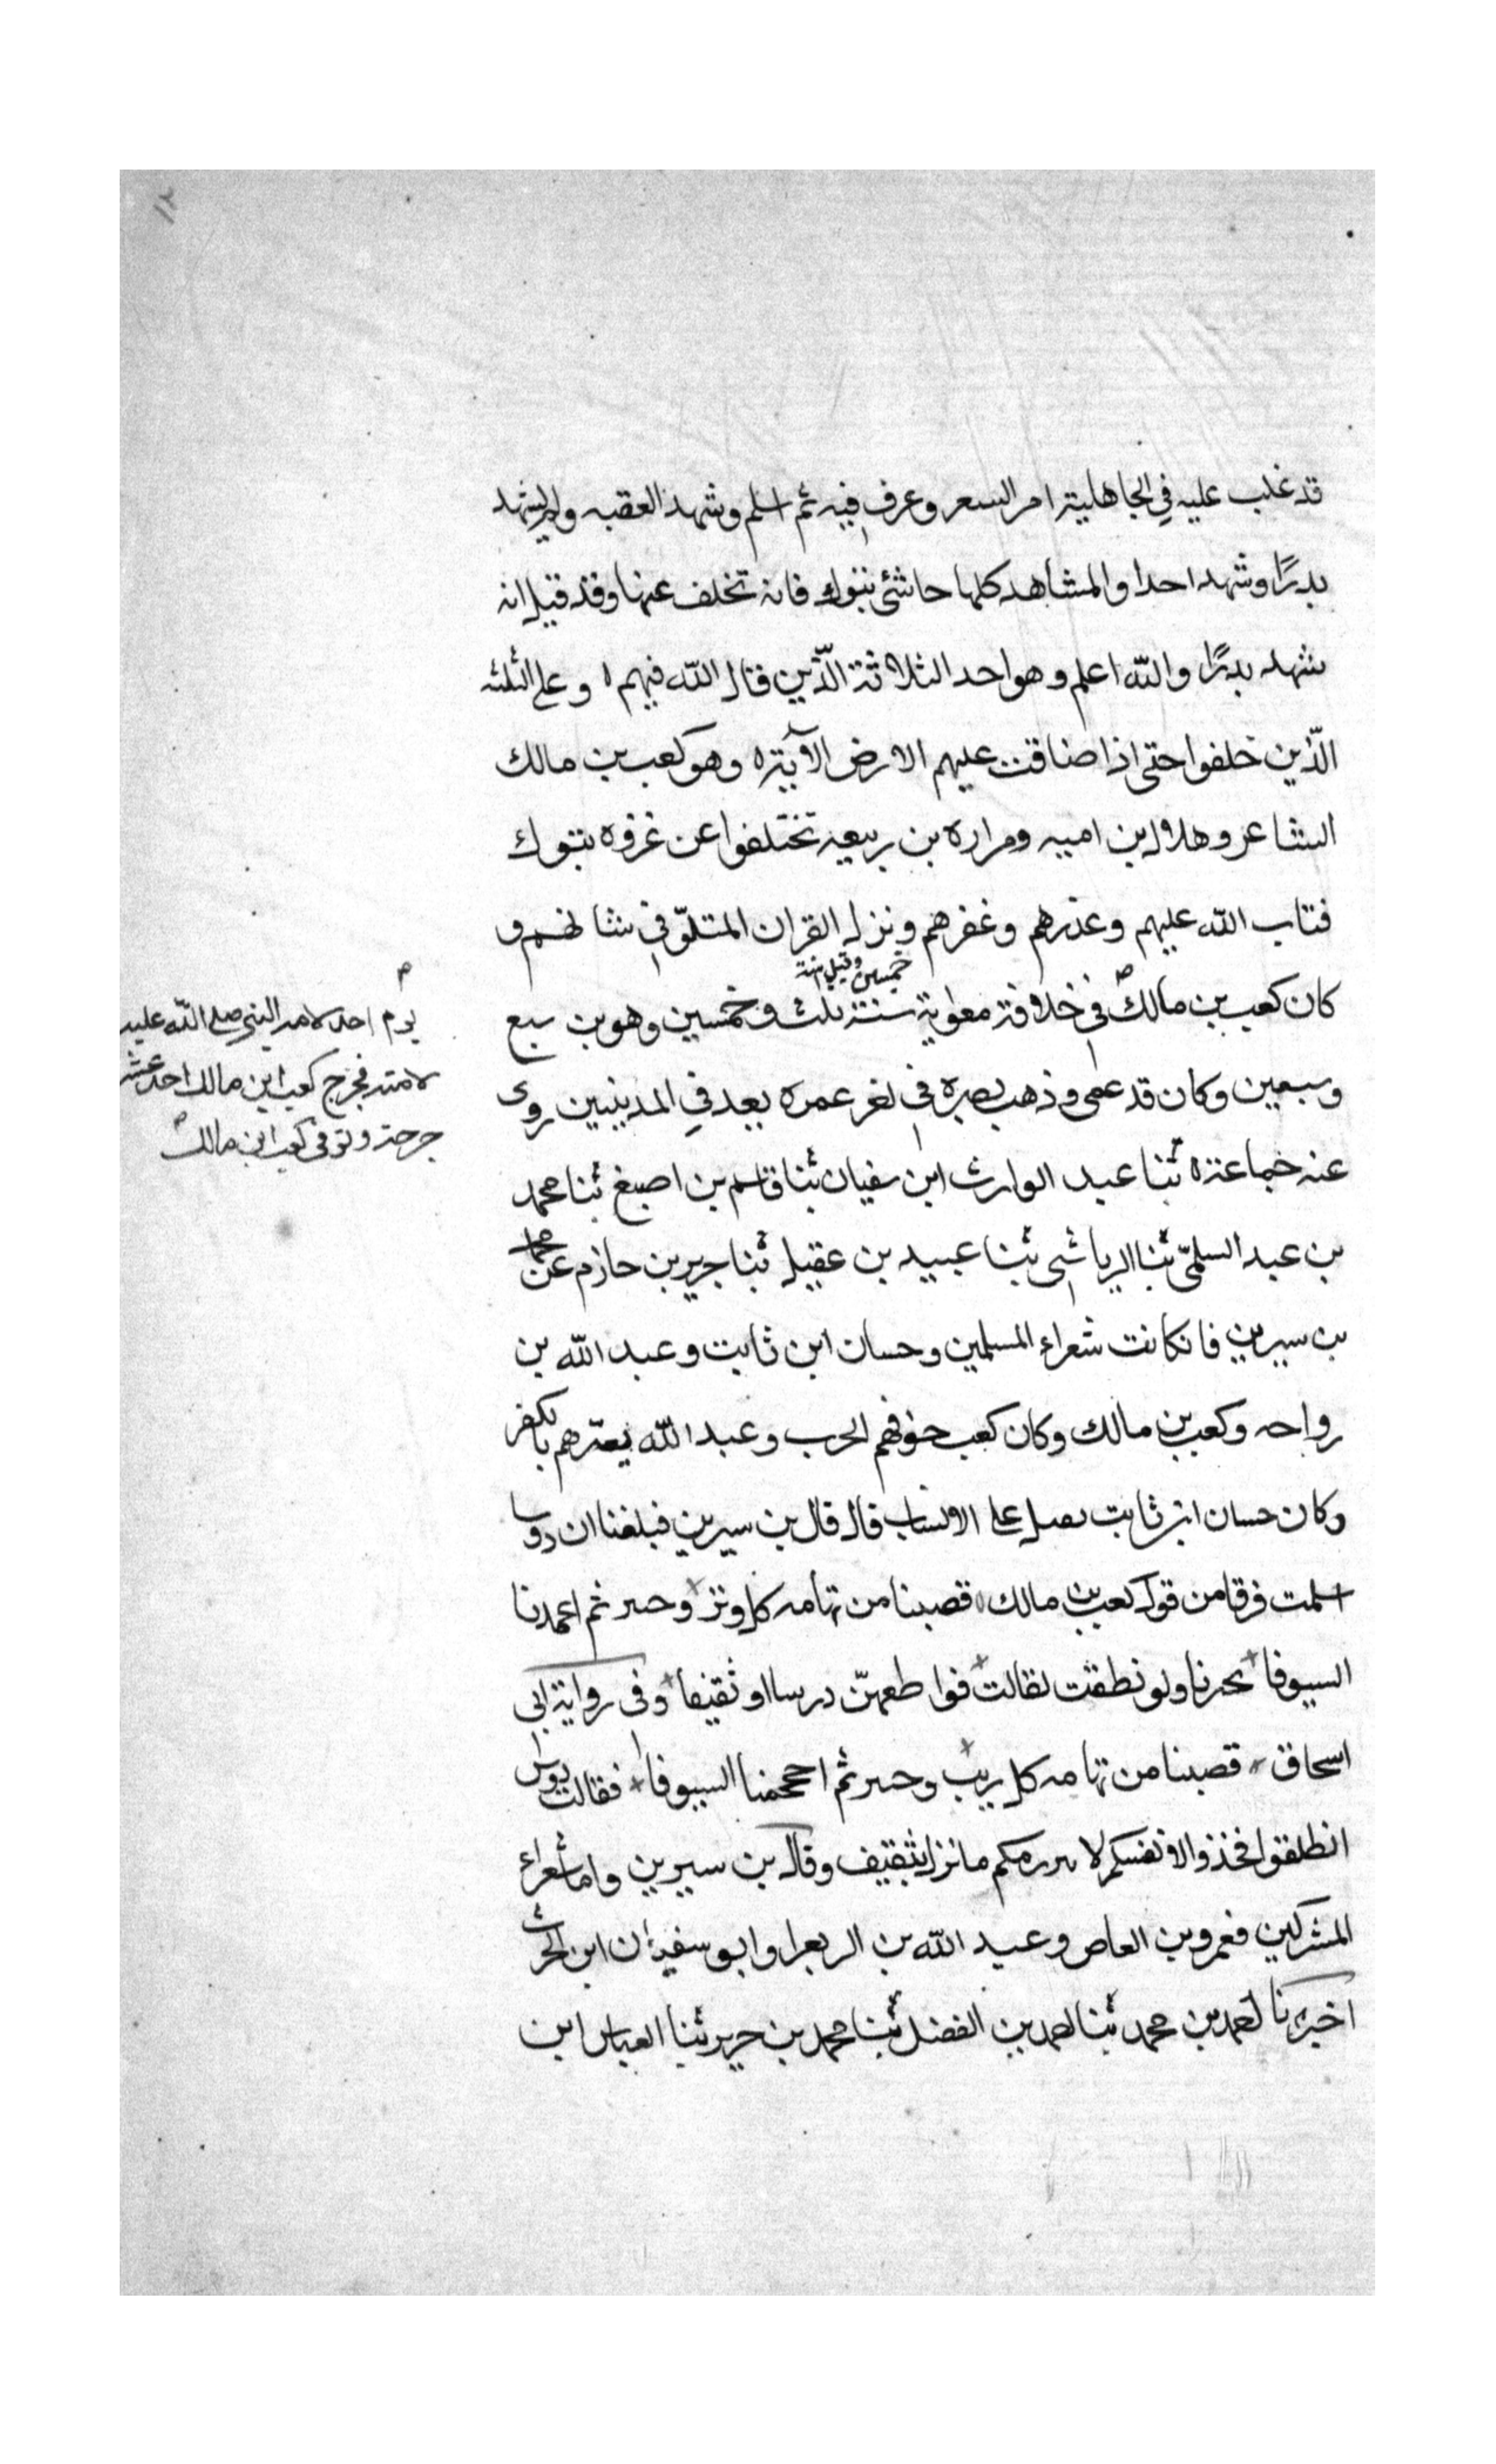 قد غلب عليه في الجاهلية امر السعر وعرف فيه ثم اسلم وشهد العقبه ولم يشهد
بدرًا وشهد احدا والمشاهد كلها حاشى تبوك فانه تخلف عنها وقد قيل انه
شهد بدرًا والله اعلم وهو احد الثلاثة الّذين قال الله فيهم ٥ وعلى الثلثه
الّذين خلفوا حتى اذا ضاقت عليهم الارض الآية ٥ وهو كعب بن مالك
الشاعر وهلال بن اميه ومراره بن ربيعه تختلفوا عن غزوه تبوك
فتاب الله عليهم وعذرهم وغفرهم ونزل القران المتلوّ في شانهم و
خمسين وقيل سنة
كان كعب بن مالك في خلافة معاوية سنة ثلث وخمسين وهو بن سبع
وسبعين وكان قد عمى وذهب بصره في لغر عمره يعد في المدينيين روى
عنه جماعة ٥ ثنا عبد الوارث ابن سفيان ثنا قاسم بن اصبغ ثنا محمد
بن عبد السلمىّ ثنا الرياشى ثنا عبيد بن عقيل ثنا جرير بن حازم عن محمد
بن سيرين قا نكانت شعراء المسلمين وحسان ابن ثابت وعبد الله بن
رواحه وكعب بن مالك وكان كعب خوفهم الحرب وعبد الله يعيّرهم بالكفر
وكان حسان ابن ثابت يصل على الانساب قال قال بن سيرين فبلغنا ان دوسا
اسلمت فرقا من قول كعب بن مالك قصينا من تهامه كل وتر وحىىر ثم اعمدنا
السيوفا نحىرنا ولو نطقت لقالت قواطعهنّ درسا او ثقيفا وفى رواية ابى
اسحاق قصينا من تهامه كل ريب وحىىر ثم احجمنا السيوفا فقالت دوس
انطلقوا فخذوا لانفسكم لا ىىرىكم ما نزل بثقيف وقال بن سيرين واما شعراء
المشركين فعمرو بن العاص وعبد الله بن الربعرا وابو سفيان ابن الحرث
اخبرنا احمد بن محمد ثنا احمد بن الفضل ثنا محمد بن جرير ثنا العباس ابن
يوم احد لامه النبى صلى الله عليه
لامته فجرح كعب ابن مالك احد عشر
جرحة وتوفى كعب ابن مالك